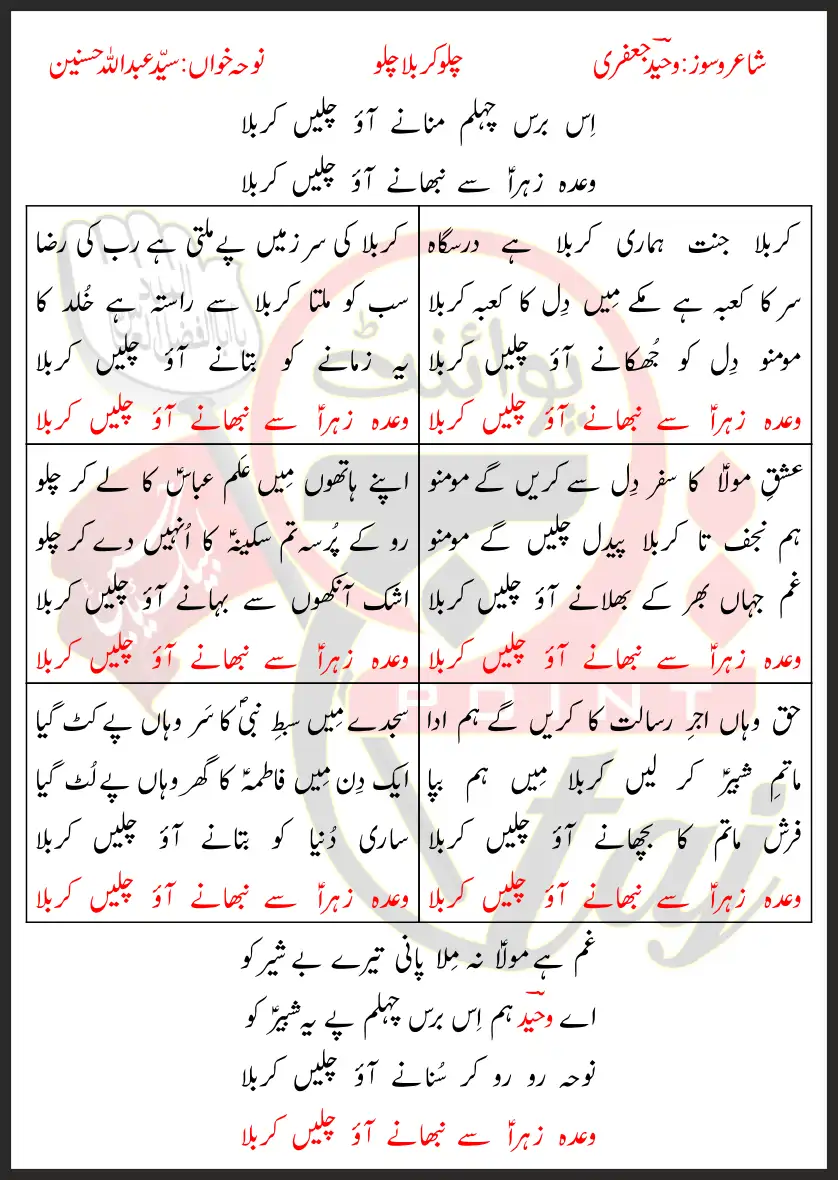 شاعر و سوز: وحیدؔ جعفری
چلو کربلا چلو
نوحہ خواں: سیّد عبداللہ حسنین
اِس برس چہلم منانے آؤ چلیں کربلا
وعدہ زہراؑ سے نبھانے آؤ چلیں کربلا
کربلا جنت ہماری کربلا ہے درسگاہ
سر کا کعبہ ہے مکے مِیں دِل کا کعبہ کربلا
مومنو دِل کو جُھکانے آؤ چلیں کربلا
وعدہ زہراؑ سے نبھانے آؤ چلیں کربلا
کربلا کی سر زمیں پے ملتی ہے رب کی رضا
سب کو ملتا کربلا سے راستہ ہے خُلد کا
یہ زمانے کو بتانے آؤ چلیں کربلا
وعدہ زہراؑ سے نبھانے آؤ چلیں کربلا
عشقِ مولاؑ کا سفر دِل سے کریں گے مومنو
ہم نجف تا کربلا پیدل چلیں گے مومنو
غم جہاں بھر کے بھلانے آؤ چلیں کربلا
وعدہ زہراؑ سے نبھانے آؤ چلیں کربلا
اپنے ہاتھوں مِیں عَلم عباسؑ کا لے کر چلو
رو کے پُرسہ تم سکینہؑ کا اُنہیں دے کر چلو
اشک آنکھوں سے بہانے آؤ چلیں کربلا
وعدہ زہراؑ سے نبھانے آؤ چلیں کربلا
حق وہاں اجرِ رسالت کا کریں گے ہم ادا
ماتمِ شبیرؑ کر لیں کربلا مِیں ہم بپا
فرش ماتم کا بچھانے آؤ چلیں کربلا
وعدہ زہراؑ سے نبھانے آؤ چلیں کربلا
سجدے مِیں سبطِ نبیؐ کا سَر وہاں پے کٹ گیا
ایک دِن مِیں فاطمہؑ کا گھر وہاں پے لُٹ گیا
ساری دُنیا کو بتانے آؤ چلیں کربلا
وعدہ زہراؑ سے نبھانے آؤ چلیں کربلا
غم ہے مولاؑ نہ مِلا پانی تیرے بے شیر کو
اے وحیدؔ ہم اِس برس چہلم پے یہ شبیرؑ کو
نوحہ رو رو کر سُنانے آؤ چلیں کربلا
وعدہ زہراؑ سے نبھانے آؤ چلیں کربلا
پوائنٹ
POINT
taj